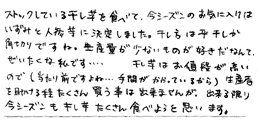 ストックしている干し芋を食べて、今シーズンのお気に入りは
いずみと人参芋に決定しました。干し芋は平干しか
角切りですね。生産量が少ないものが好きだなんて、
ぜいたくな私です‥‥ 干し芋はお値段が高い
ので(当たり前ですよね…手間がかかっているから)生産者
を助ける程たくさん買う事は出来ませんが、出来る限り
今シーズンも干し芋たくさん食べようと思います。